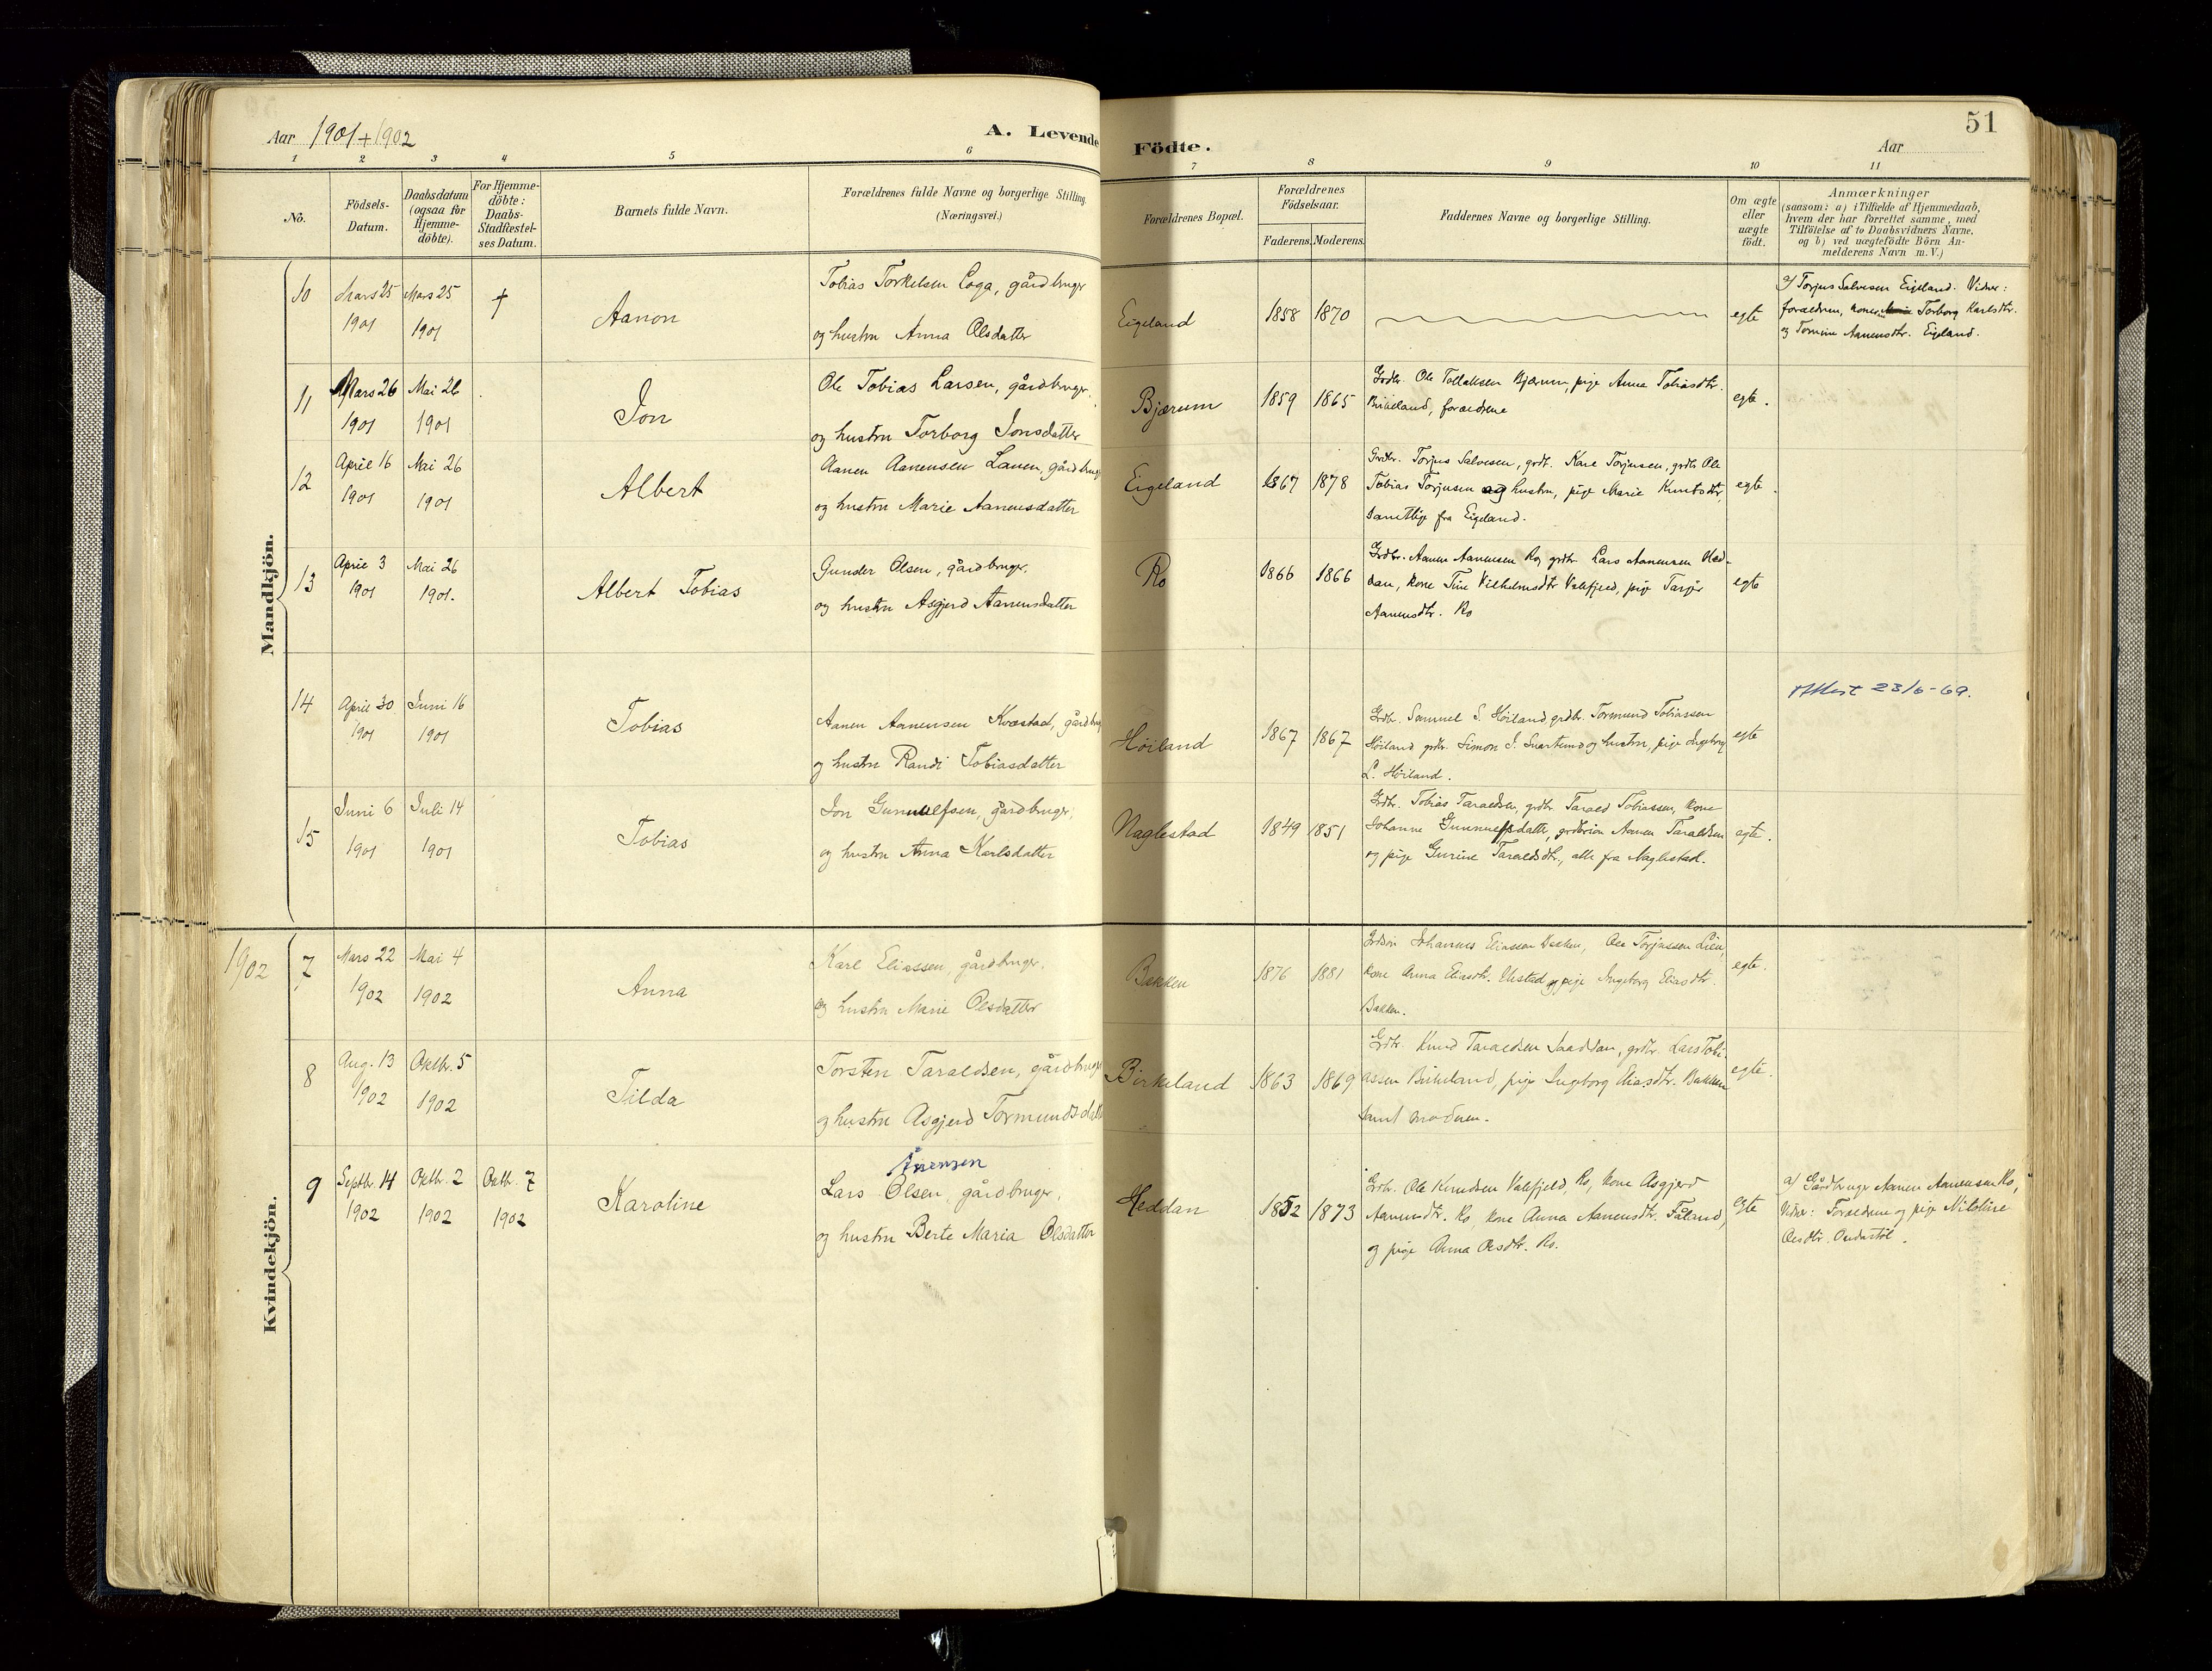 Aar 1901 + 1902
A. Levende Födte.
51
Aar
1 2 3 4 5 6 7 8 9 10 11
No.
Födsels-Datum.
Daabsdatum (ogsaa for Hjemme-döbte).
For Hjemme-döbte: Daabs-Stadfæstel-ses Datum.
Barnets fulde Navn.
Forældrenes fulde Navne og borgerlige Stilling (Næringsvei.)
Forældrenes Bopæl.
Forældrenes Födselsaar.
Faderens. Moderens.
Faddernes Navne og borgerlige Stilling.
Om ægte eller uægte födt.
Anmærkninger
(saasom: a) i Tilfælde af Hjemmedaab,
hvem der har forrettet samme, med
Tilföielse af to Daabsvidners Navne,
og b) ved uægtefödte Börn An-
melderens Navn m. V.)
Mandkjön.
10 Mars 25 1901 Mars 25 1901 +
Aanon
Tobias Torkelsen Loga, gårdbruger
og hustru Anna Olsdatter
Eigeland 1858 1870
egte
a) Torjus Salvesen Eigeland. Vidner:
forældrene, kone Torborg Karlsdtr.
og Tomine Aanensdtr. Eigeland.
11 Mars 26 1901 Mai 26 1901
Jon
Ole Tobias Larsen, gårdbruger.
og hustru Torborg Jonsdatter
Bjærum 1859 1865
Grdbr. Ole Tollaksen Bjærum, pige Anna Tobiasdtr.
Birkeland, forældrene
egte.
12 April 16 1901 Mai 26 1901
Albert
Aanen Aanensen Lauen, gårdbrug
og hustru Marie Aanensdatter
Eigeland 1867 1878
Grdbr. Torjus Salvesen, grdt. Kare Torjusen, grdbr Ole
Tobias Torjusen og hustru, pige Marie Knutsdtr,
samtlige fra Eigeland.
egte.
13 April 3 1901 Mai 26 1901.
Albert Tobias
Gunder Olsen, gårdbruger,
og hustru Asgjerd Aanensdatter
Ro 1866 1866
Grdbr. Aanen Aanensen Ro, grdbr Lars Aanensen Hed-
dan, kone Tine Vilhelmsdtr Valefjeld, pige Tarjer
Aanensdtr. Ro
egte
14 April 30 1901 Juni 16 1901
Tobias
Aanen Aanensen Kvæstad, gårdbrug
og hustru Randi Tobiasdatter
Höiland 1867 1867
Grdbr. Samuel S. Höiland grdbr. Tormund Tobiassen
Höiland grdbr. Simon I. Svartemo og hustru, pige Ingeborg
L. Höiland.
egte
Attest 23/6-69.
15 Juni 6 1901 Juli 14 1901
Tobias
Jon Gunnulfsen, gårdbruger,
og hustru Anna Karlsdatter
Naglestad 1849 1851
Grdbr. Tobias Taraldsen, grdbr. Tarald Tobiassen, kone
Johanne Gunnulfsdatter, grdbrsön Aanen Taraldsen
og pige Gurine Taraldsdtr., alle fra Naglestad.
egte.
Kvindekjön.
1902
7 Mars 22 1902 Mai 4 1902
Anna
Karl Eliassen, gårdbruger,
og hustru Marie Olsdatter
Bakken 1876 1881
Grdsön Johannes Eliassen Bakken, Ole Torjussen Lien,
kone Anna Eliasdtr. Ulestad og pige Ingeborg Eliasdtr.
Bakken.
egte.
8 Aug. 13 1902 Oktbr. 5 1902
Tilda
Torsten Taraldsen, gårdbruger
og hustru Asgjerd Tormundsdatt
Birkeland 1863 1869
Grdbr. Knud Taraldsen Haaddan, grdbr. Lars Tobi-
assen Birkeland, pige Ingeborg Eliasdtr. Bakken
samt moderen.
egte.
9 Septbr. 14 1902 Oktbr. 2 1902 Oktbr. 7 1902
Karoline
Ånensen
Lars Olsen, gårdbruger,
og hustru Berte Maria Olsdatter
Heddan 1852 1873
Grdbr. Ole Knudsen Valefjeld, Ro, kone Asgjerd
Aanensdtr. Ro, kone Anna Aanensdtr. Faland,
og pige Anna Olsdtr. Ro.
egte
a) Gårdbruger Aanen Aanensen Ro,
Vidner: Forældrene og pige Nikoline
Olsdtr.